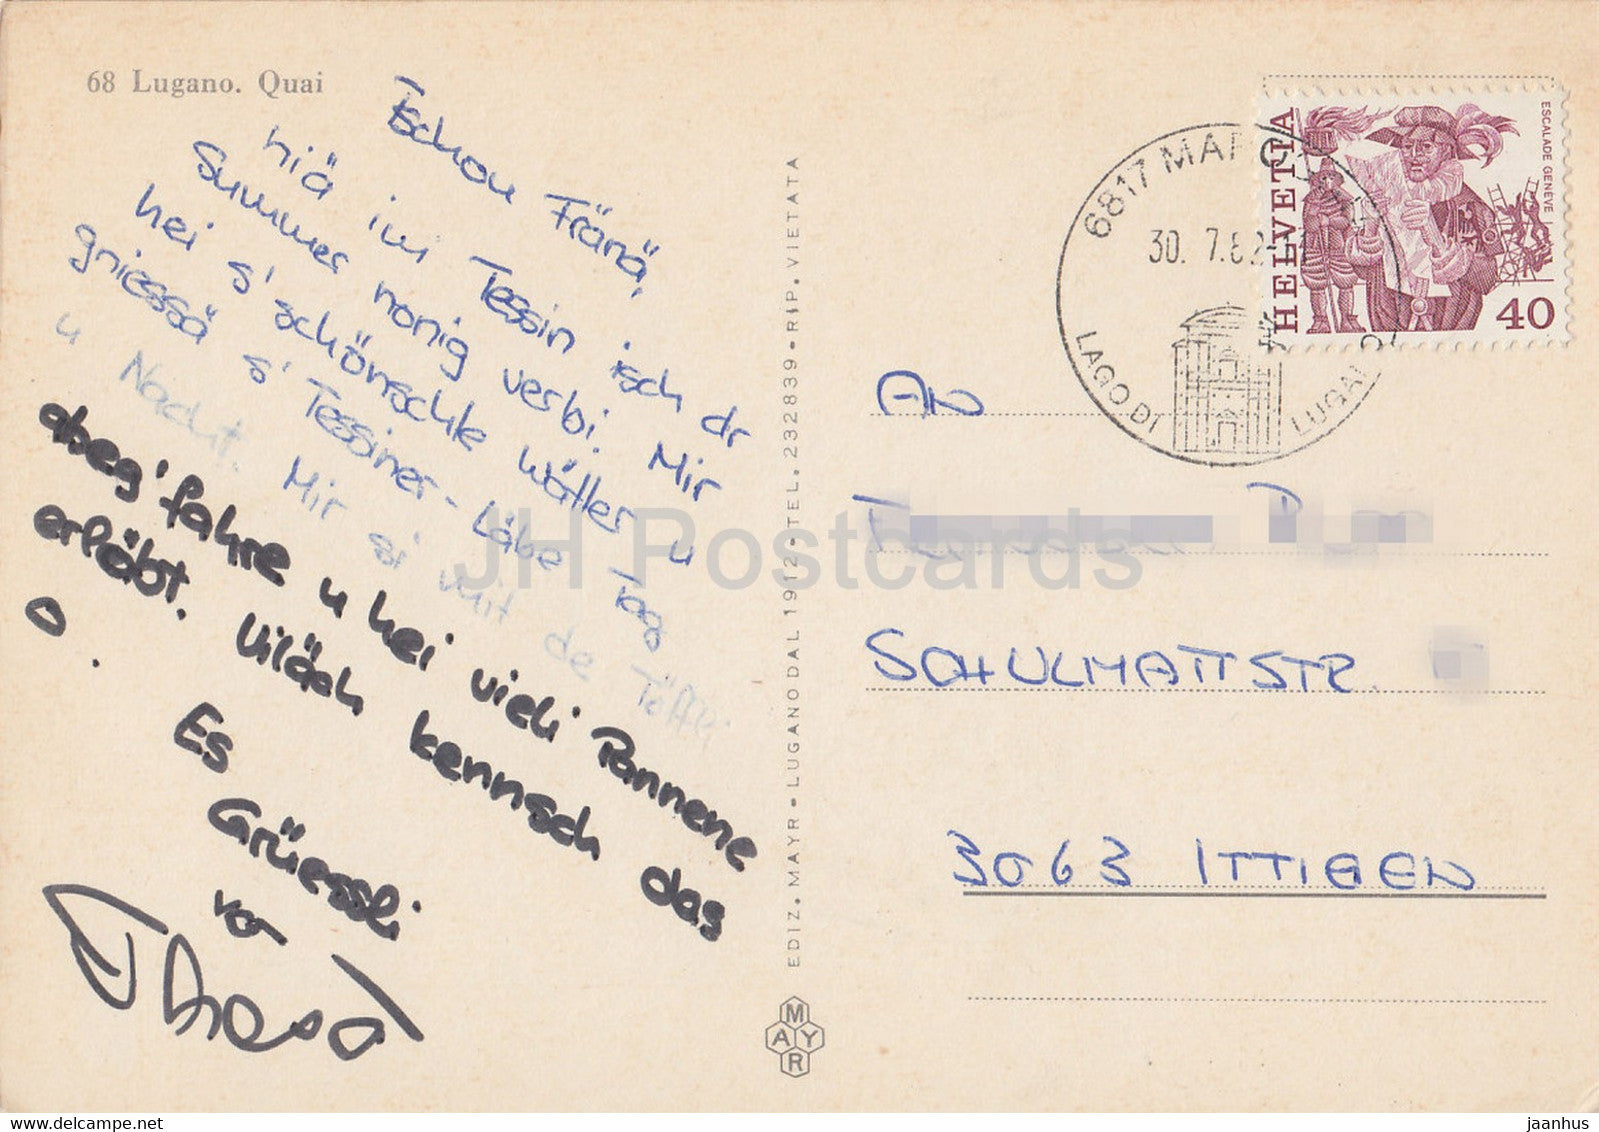 68 Lugano. Quai
Tschou Fränä,
hiä im Tessin isch dr
Summer nonig verbi. Mir
hei s'schönschte Wätter u
gniessä s'Tessiner-Läbe Tag
u Nacht. Mir si mit de Töffli
abeg'fahre u hei vieli Pannene
erläbt. Viläch kennsch das
o.
Es
Grüessli
vo
EDIZ. MAYR - LUGANO DAL 1912 - TEL. 232839 - RIP. VIETATA
MAYR
6817 MAROGGIA
30. 7.82
LAGO DI LUGANO
HELVETIA
ESCALADE GENEVE
40
AN
SCHULMATTSTR.
3063 ITTIGEN
JH Postcards
www.delcampe.net
jaanhus